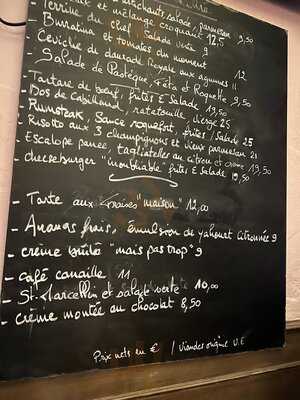 et mélange croquant 12,5
- Terrine du chef Salade verte 9
- Burratina et tomates du moment
- Ceviche de daurade Royale aux agrumes 11
- Salade de Pastèque, Feta et Roquette 9,50
12
- Tartare de bœuf, frites & Salade 19,50
- Dos de Cabillaud, ratatouille vierge 25
- Rumsteak, Sauce roquefort, frites / Salade 25
- Risotto aux 3 champignons et vieux parmesan 21
- Escalope panée, tagliatelles au citron et crème 19,50
- cheeseburger "inoubliable" frites & Salade 19,50
- Tarte aux Fraises "maison" 12,00
- Ananas frais, émulsion de yahourt citronnée 9
- crème brûlée "mais pas trop" 9
- café canaille 11
- St. Marcellin et salade verte 10,00
- crème montée au chocolat 8,50
Prix nets en € / Viandes origine U.E